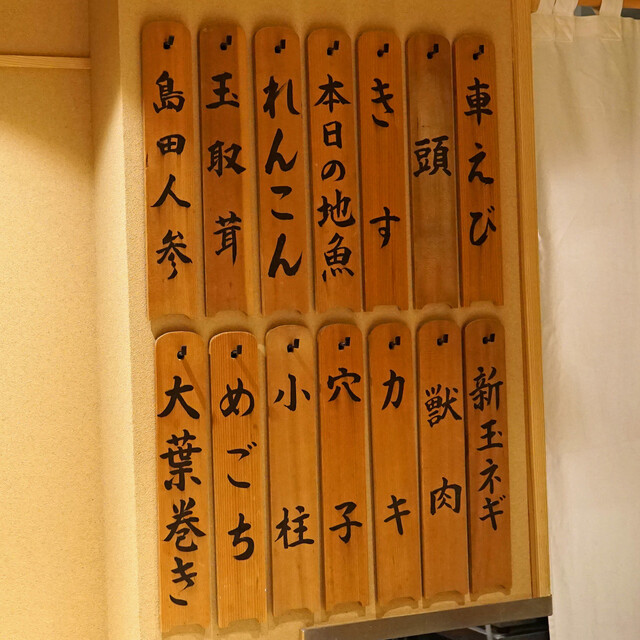 車えび
頭
きす
本日の地魚
れんこん
玉取茸
島田人参
新玉ネギ
獣肉
カキ
穴子
小柱
めごち
大葉巻き